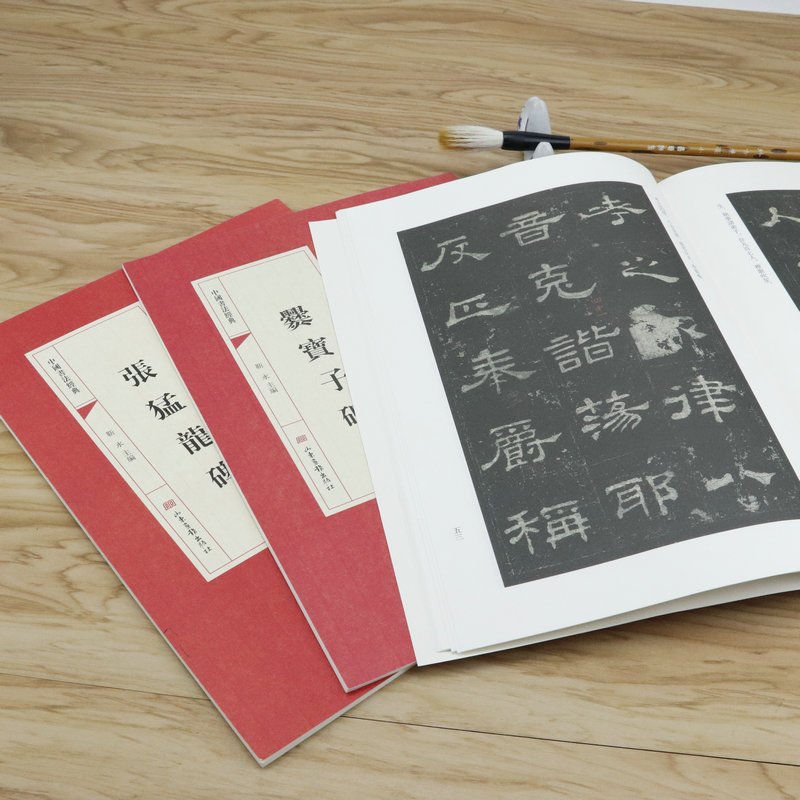 中國書法經典
張猛龍碑
靳永主編
山東畫報出版社
中國書法經典
爨寶子碑
靳永主編
山東畫報出版社
考之六律八
音克諧蕩耶
反正奉爵稱
五三
人